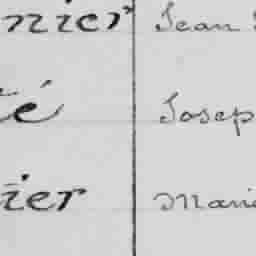 nier Jean
té Josep
ier Marie